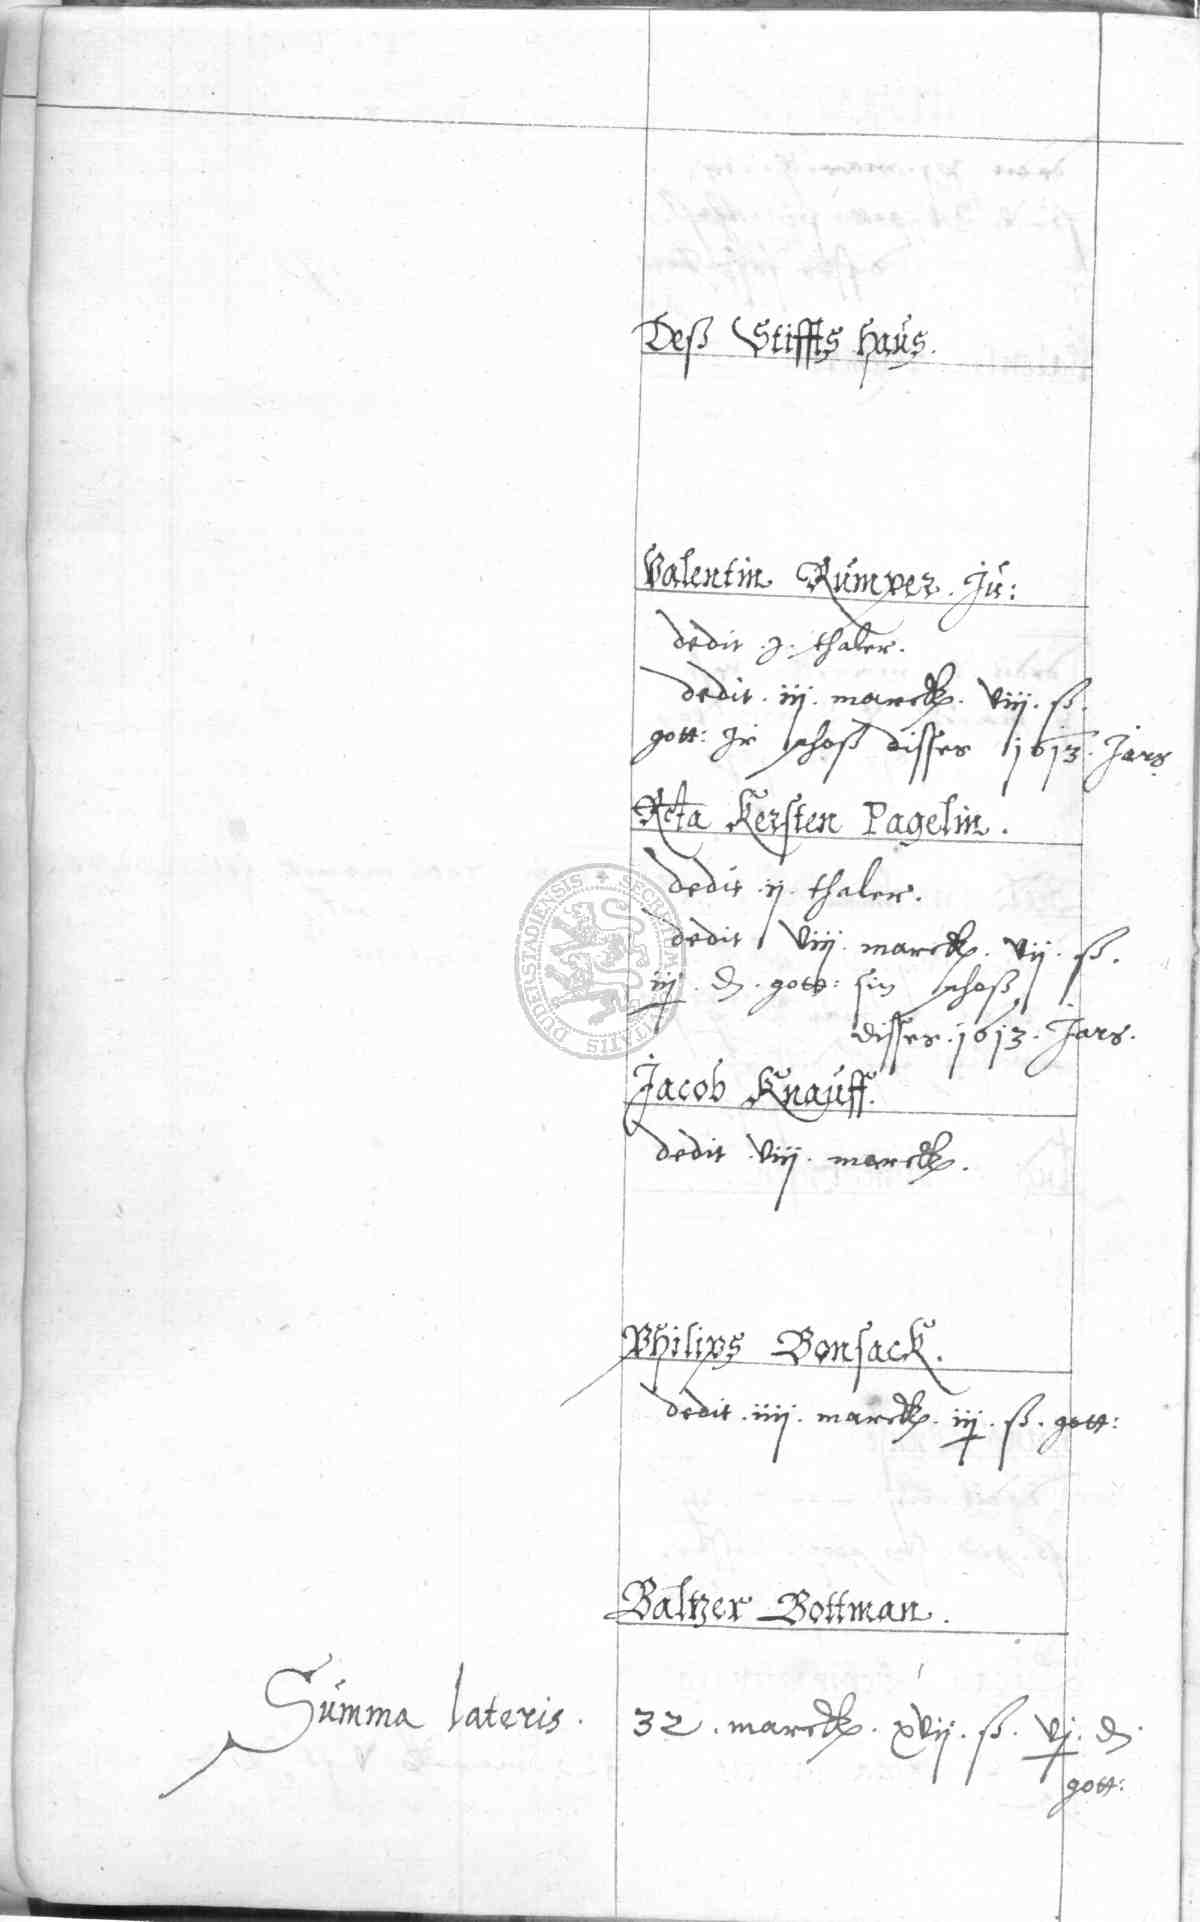 Deß Stiffts Haus.
Valentin Rümper. Jü:
dedit .j. thaler.
dedit . iij . marck . viij . ß .
gott: Jr schoß disses 1613. Jars
Rcta Kersten Pagelin.
dedit ij . thaler.
dedit viij . marck . vij . ß .
iij . d . gott: sin schoß
disses . 1613 . Jars.
Jacob Knauff.
dedit viij . marck .
Philips Bonsack.
dedit . iiij . marck . iij . ß . gott:
Baltzer Bottman .
Summa lateris . 32 . marck . xvij . ß . vj . d
gott:
SECRETUM CIVITATIS DUDERSTADIENSIS